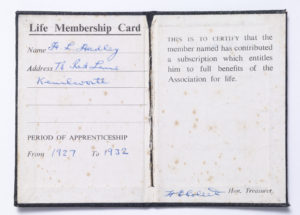 Life Membership Card
Name H L Hadley
Address 78
Kenilworth
PERIOD OF APPRENTICESHIP
From 1927 To 1932
THIS IS TO CERTIFY that the
member named has contributed
a subscription which entitles
him to full benefits of the
Association for life.
Hon. Treasurer.